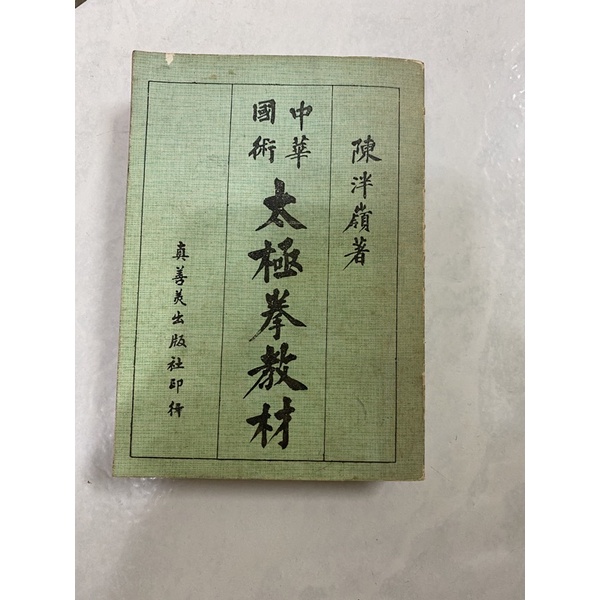 陳泮嶺著
中華
國術
太極拳教材
真善美出版社印行